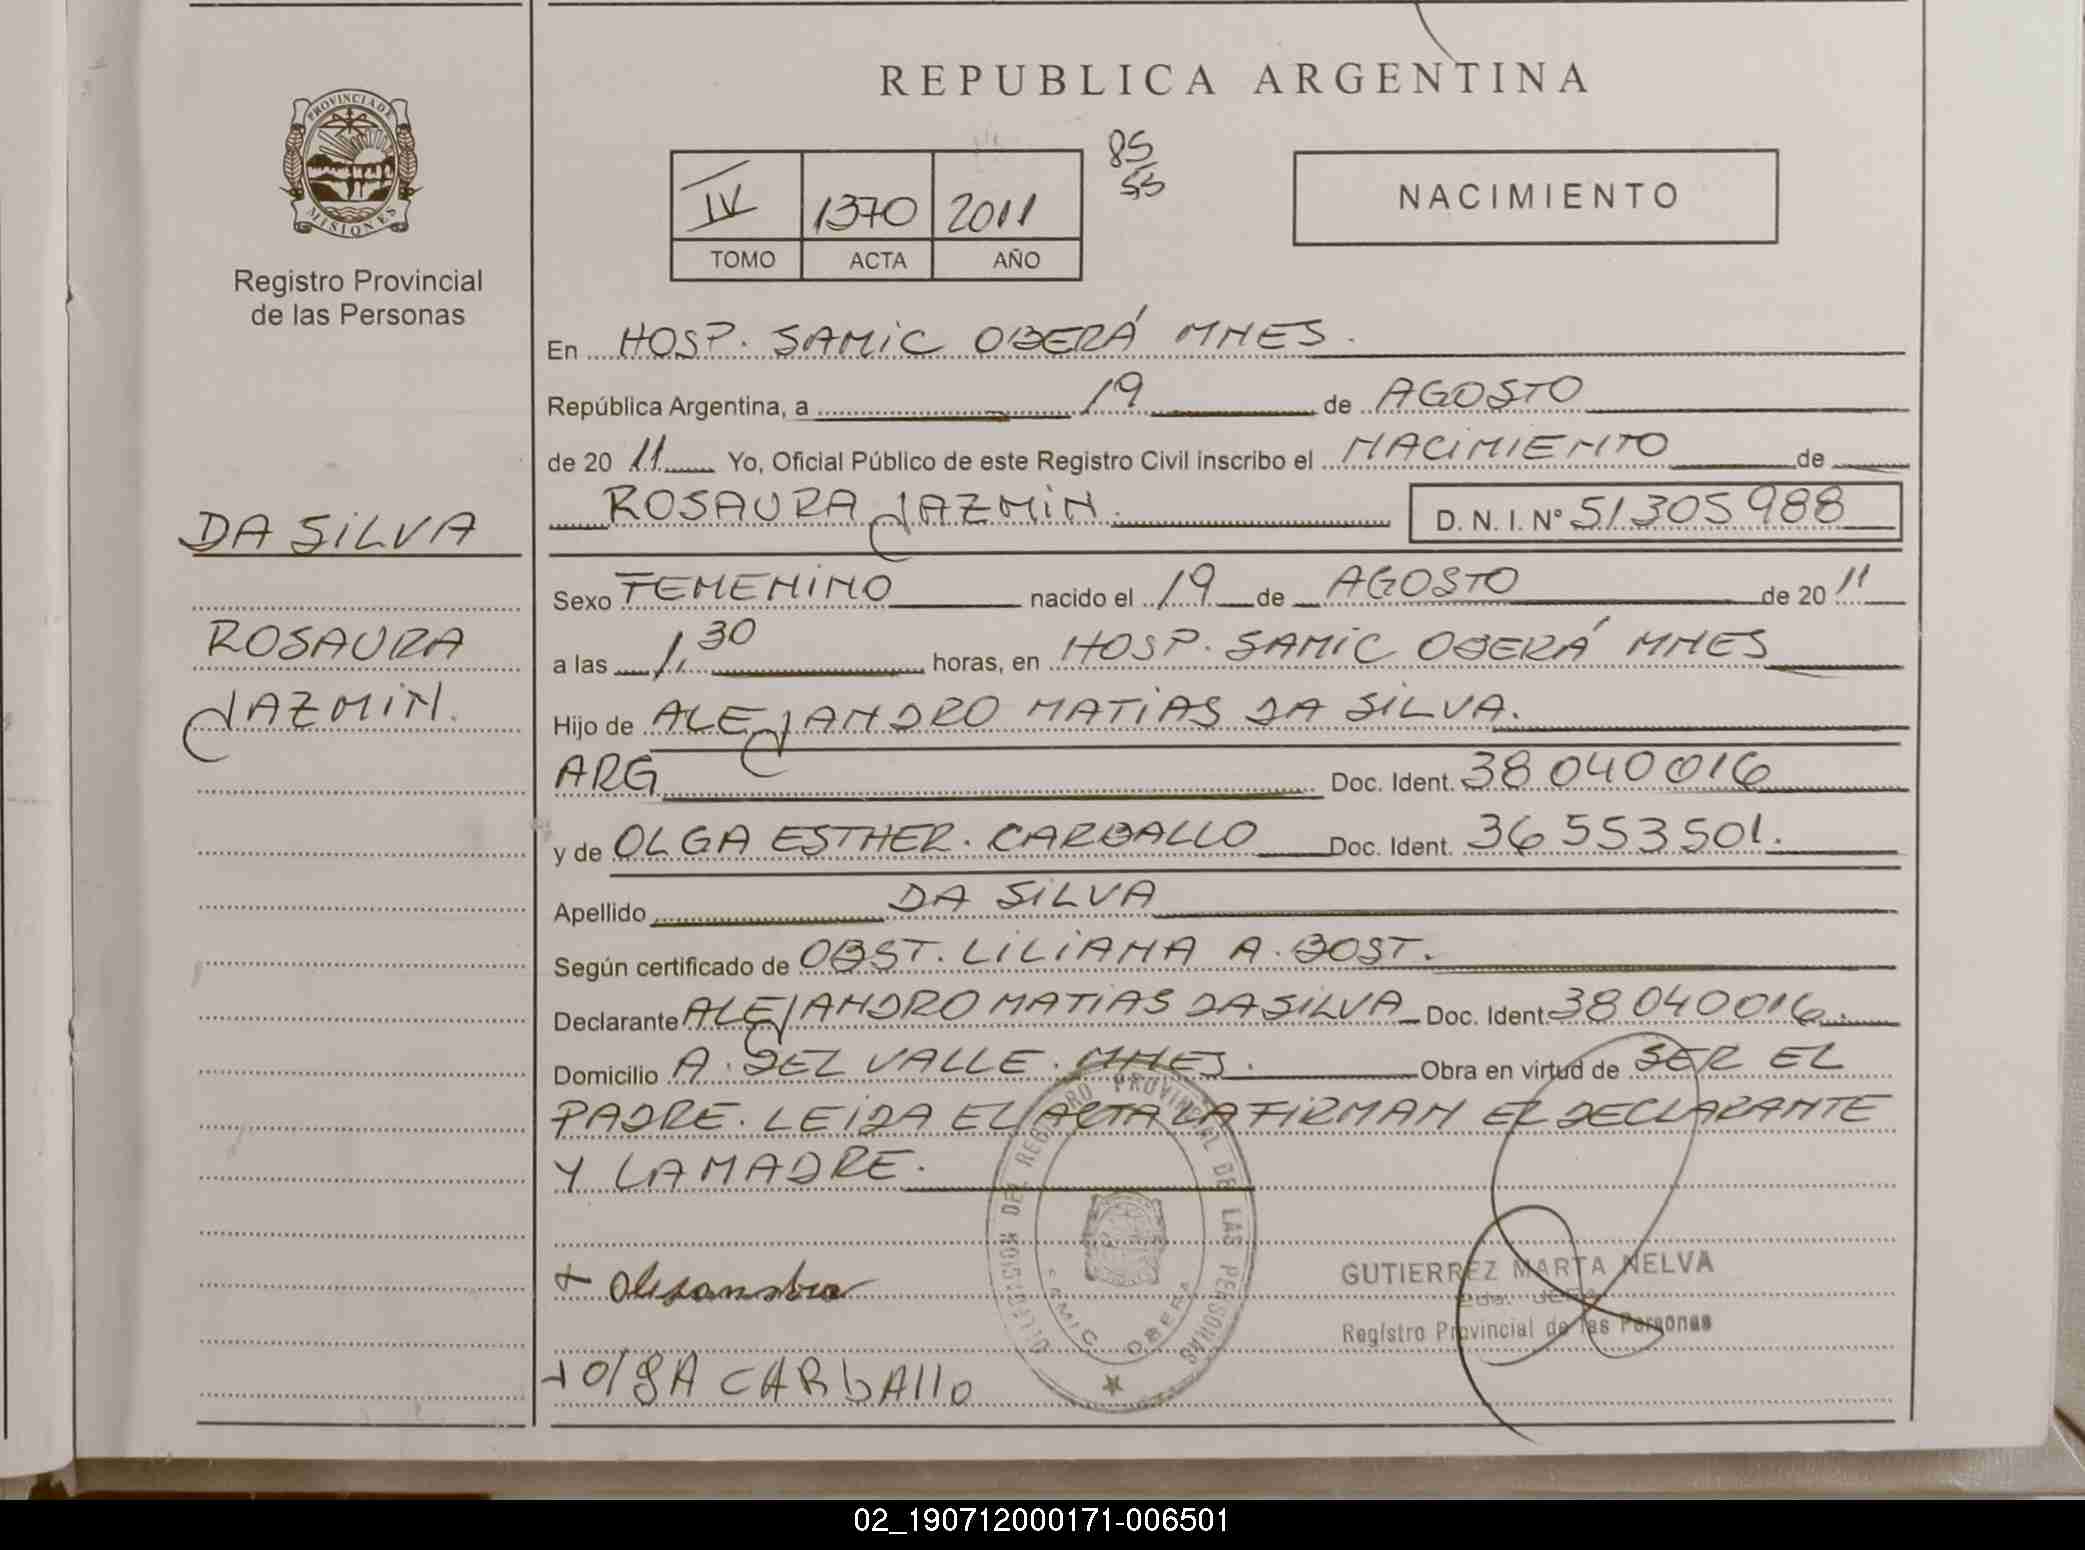 PROVINCIA DE
MISIONES
Registro Provincial
de las Personas
DA SILVA
ROSAURA
JAZMIN.
REPUBLICA ARGENTINA
IV 1370 2011
TOMO ACTA AÑO
85
55
NACIMIENTO
En HOSP. SAMIC OBERÁ MNES.
República Argentina, a 19 de AGOSTO
de 20 11 Yo, Oficial Público de este Registro Civil inscribo el NACIMIENTO de
ROSAURA JAZMIN. D. N. I. N° 51305988
Sexo FEMENINO nacido el 19 de AGOSTO de 20 11
a las 1.30 horas, en HOSP. SAMIC OBERÁ MNES
Hijo de ALEJANDRO MATIAS DA SILVA.
ARG Doc. Ident. 38040016
y de OLGA ESTHER. CARBALLO Doc. Ident. 36553501.
Apellido DA SILVA
Según certificado de OBST. LILIANA A. BOST.
Declarante ALEJANDRO MATIAS DA SILVA Doc. Ident. 38040016.
Domicilio A. DEL VALLE. MNES. Obra en virtud de SER EL
PADRE. LEIDA EL ACTA LA FIRMAN EL DECLARANTE
Y LA MADRE.
DEL REGISTRO PROVINCIAL DE LAS PERSONAS
SAMIC OBERA
GUTIERREZ MARTA NELVA
Registro Provincial de las Personas
+ olgA CARbAllo
02_190712000171-006501